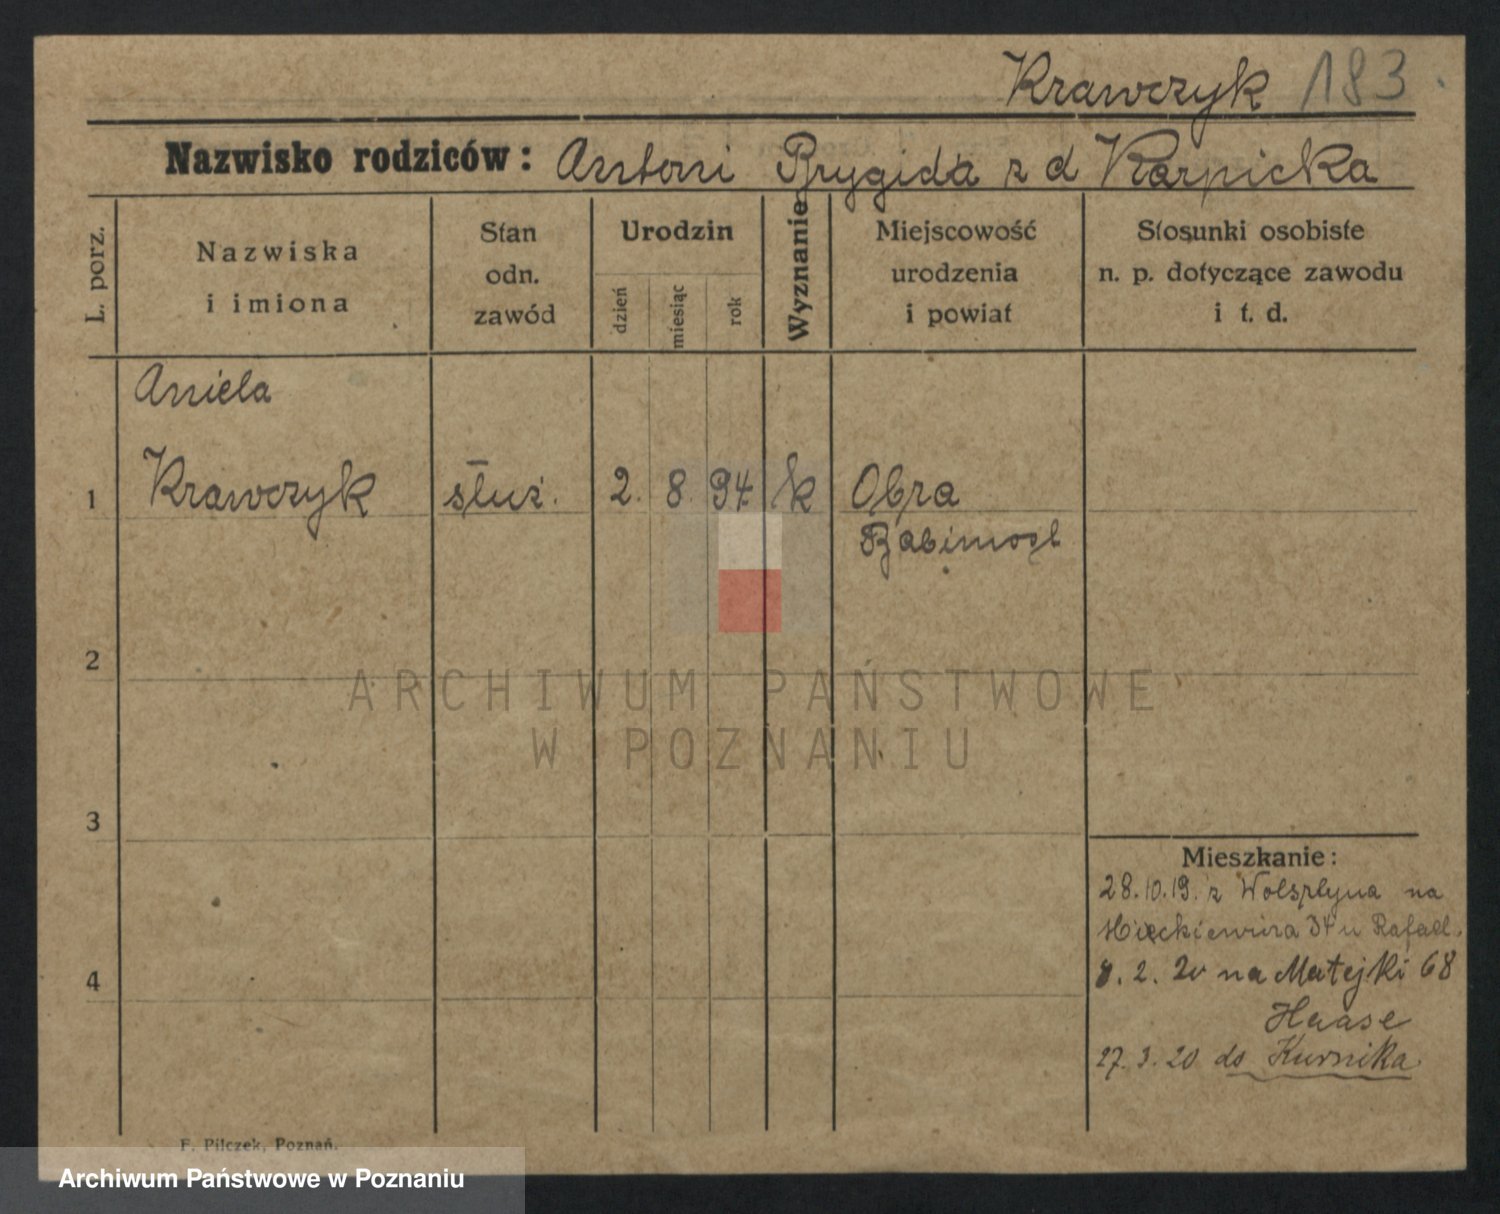 Krawczyk 183
Nazwisko rodziców: Antoni Brygida z d Karpicka
L. porz.
Nazwiska
i imiona
Stan
odn.
zawód
Urodzin
dzień
miesiąc
rok
Wyznanie
Miejscowość
urodzenia
i powiat
Stosunki osobiste
n. p. dotyczące zawodu
i t. d.
Aniela
1 Krawczyk służ. 2. 8. 94 k Obra
Babimost
2
3
4
Mieszkanie:
28.10.19. z Wolsztyna na
34 u Rafael.
2. 20 na Matejki 68
Haase
27. 3. 20 do Kurnika
F. Pilczek, Poznań.
ARCHIWUM PAŃSTWOWE
W POZNANIU
Archiwum Państwowe w Poznaniu